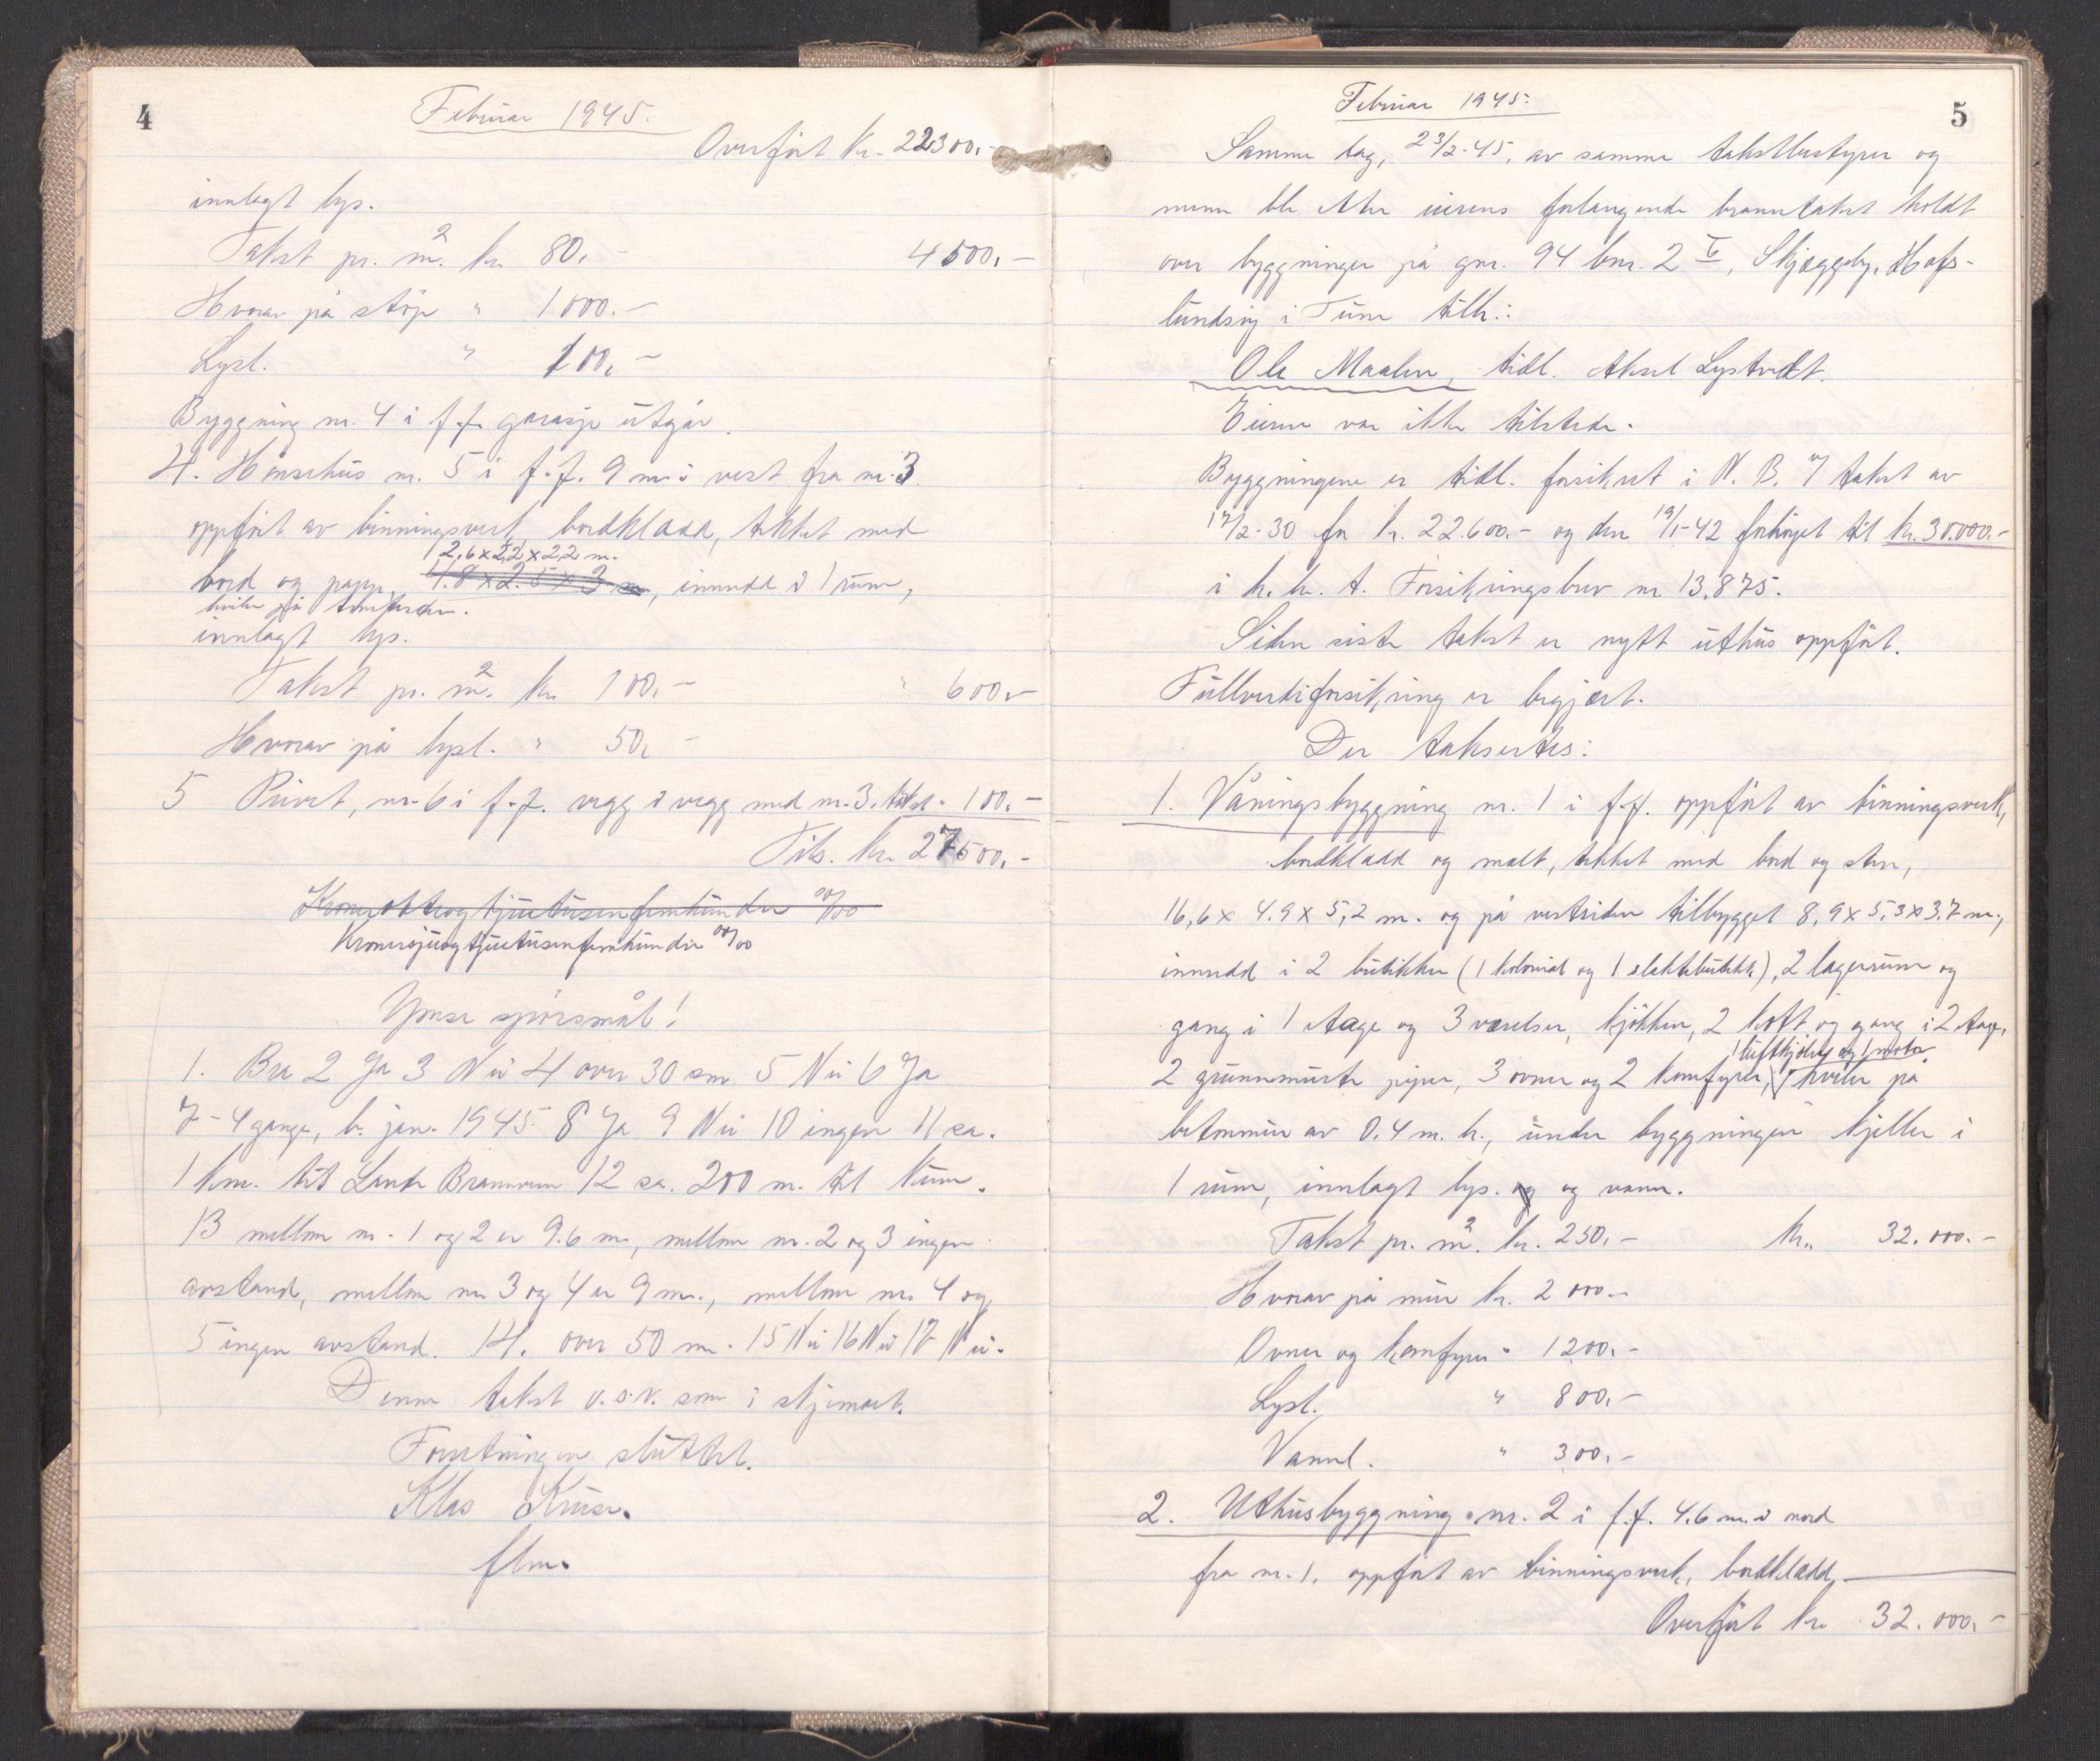 4
Februar 1945.
Overført kr. 22300.-
innlagt lys.
Takst pr. m². kr. 80.- 4500.-
Hvorav på støp " 1000.-
Lysl. " 100.-
Byggning nr. 4 i f.f. garasje utgår.
4. Hønsehus nr. 5 i f.f. 9 m. i vest fra nr. 3
oppført av binningsverk, bordkledd, tekket med
2,6 x 2,2 x 2,2 m.
bord og papp, 1.8 x 2.5 x 3 m, innredd i 1 rum,
hviler på
innlagt lys.
Takst pr. m². kr. 100.- " 600.-
Hvorav på lysl. " 50.-
5 Privet, nr. 6 i f.f. vegg i vegg med nr. 3. takst. 100.-
Tils. kr. 27500.-
Kroner åtteogtjuetusenfemhundre 00/00
Kronersjuogtjuetusenfemhundre 00/00
Ymse spørsmål!
1. Bra 2 Ja 3 Nei 4 over 30 sm 5 Nei 6 Ja
7-4 gange, b. jan. 1945. 8 Ja 9 Nei 10 ingen 11 ca.
1 km. til Lande Brannvern 12 ca. 200 m. til kum.
13 mellom nr. 1 og 2 er 9.6 m., mellom nr. 2 og 3 ingen
avstand, mellom nr. 3 og 4 er 9 m., mellom nr. 4 og
5 ingen avstand. 14. over 50 m. 15 Nei 16 Nei 17 Nei.
Denne takst v.s.v. som i skjemaet.
Forretningen sluttet.
Klas Kruse.
flm.
5
Februar 1945.
Samme dag, 23/2-45, av samme takstbestyrer og
menn ble etter eierens forlangende branntakst holdt
over byggninger på gnr. 94 bnr. 2 Skjeggeby, Hafs-
lundsøy i Tune tilh.:
Ole Maalen, tidl. Aksel Lystvedt.
Eieren var ikke tilstede.
Byggningene er tidl. forsikret i N. B. 7 takst av
17/2-30 for kr. 22.600.- og den 19/1-42 forhøyet til kr. 30.000.-
i h. h. t. Forsikringsbrev nr. 13.875.
Siden siste takst er nytt uthus oppført.
Fullverdiforsikring er begjært.
Der taksertes:
1. Våningsbyggning nr. 1 i f.f. oppført av binningsverk,
bordkledd og malt, tekket med bord og sten,
16,6 x 4.9 x 5,2 m. og på vestsiden tilbygget 8,9 x 5,3 x 3.7 m.,
innredd i 2 butikker (1 kolonial og 1 slakterbutikk), 2 lagerrum og
gang i 1 etage og 3 værelser, kjøkken, 2 loft og gang i 2 etage,
1 luftkjøler og 1 motor.
2 grunnmurte piper, 3 ovner og 2 komfyrer, hviler på
betonmur av 0.4 m. h., under byggningen kjeller i
1 rum, innlagt lys. og og vann.
Takst pr. m². kr. 250.- kr. 32.000.-
Hvorav på mur kr. 2000.-
Ovner og komfyrer " 1200.-
Lysl. " 800.-
Vannl. " 300.-
2. Uthusbyggning. nr. 2 i f.f. 4.6 m. i nord
fra nr. 1. oppført av binningsverk, bordkledd,
Overført kr. 32.000.-